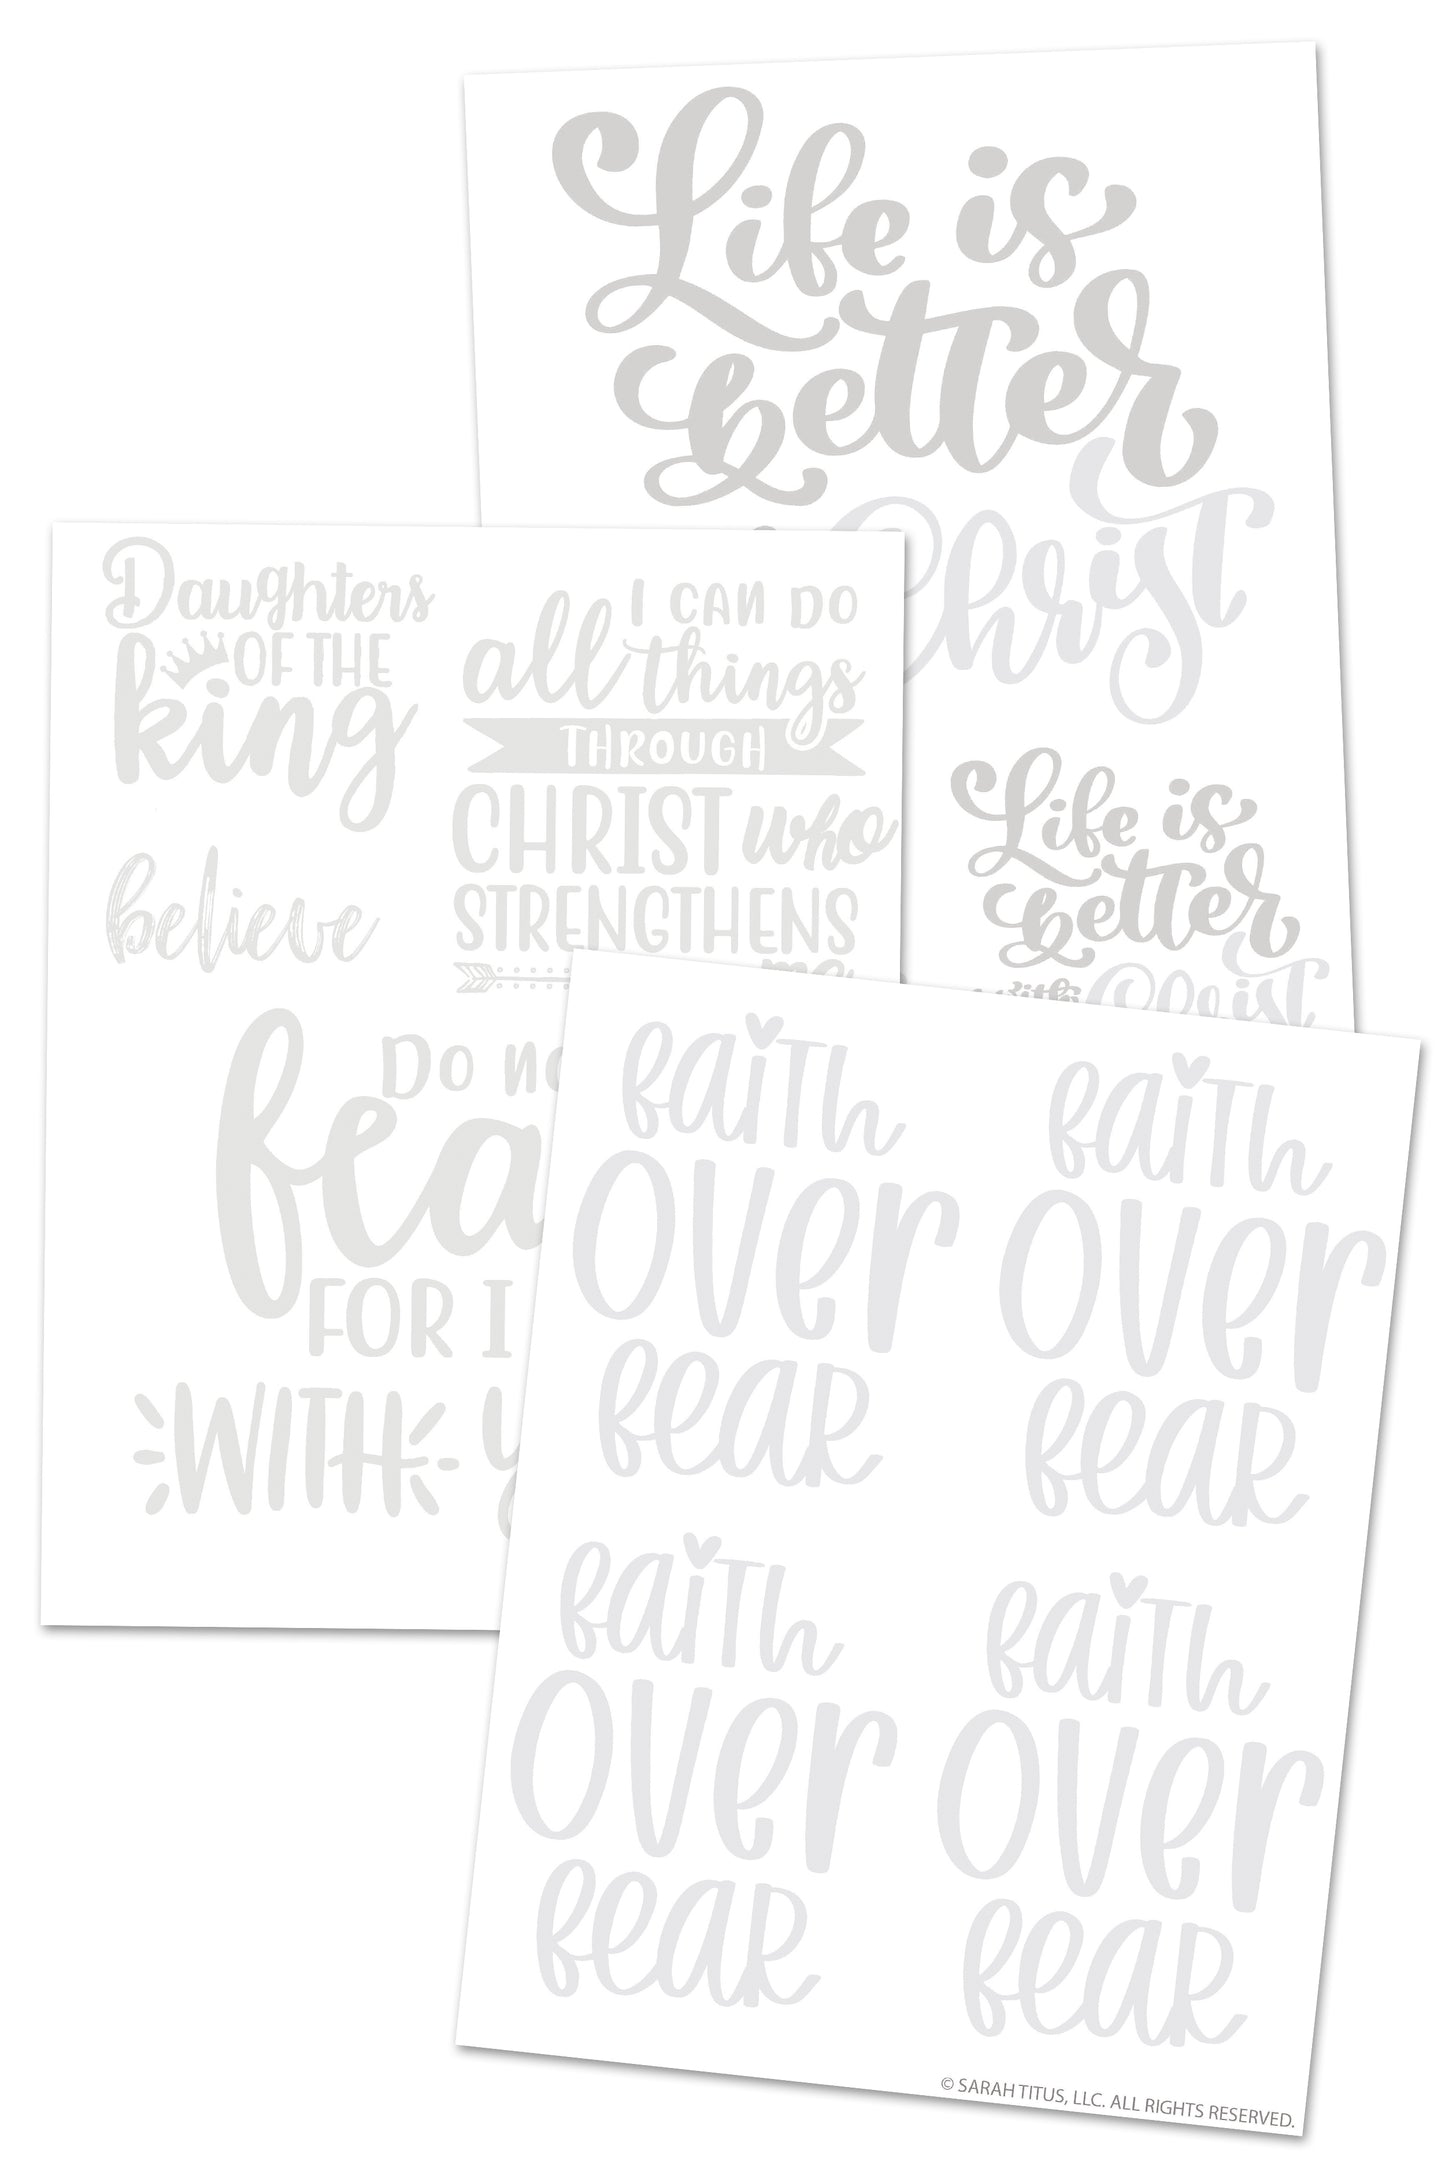 Life is
better
Christ
Life is
better
with Christ
Daughters
OF THE
king
believe
I CAN DO
all things
THROUGH
CHRIST who
STRENGTHENS
me
Do
fea
FOR I
WITH
faith
over
fear
faith
over
fear
faith
over
fear
faith
over
fear
© SARAH TITUS, LLC. ALL RIGHTS RESERVED.